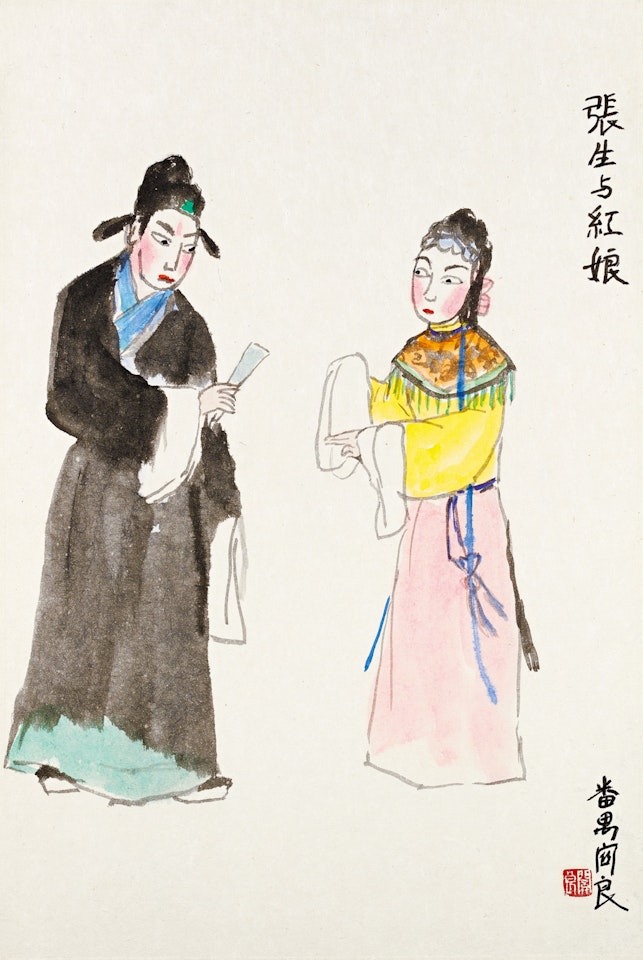 張生与紅娘
番禺関良
關良